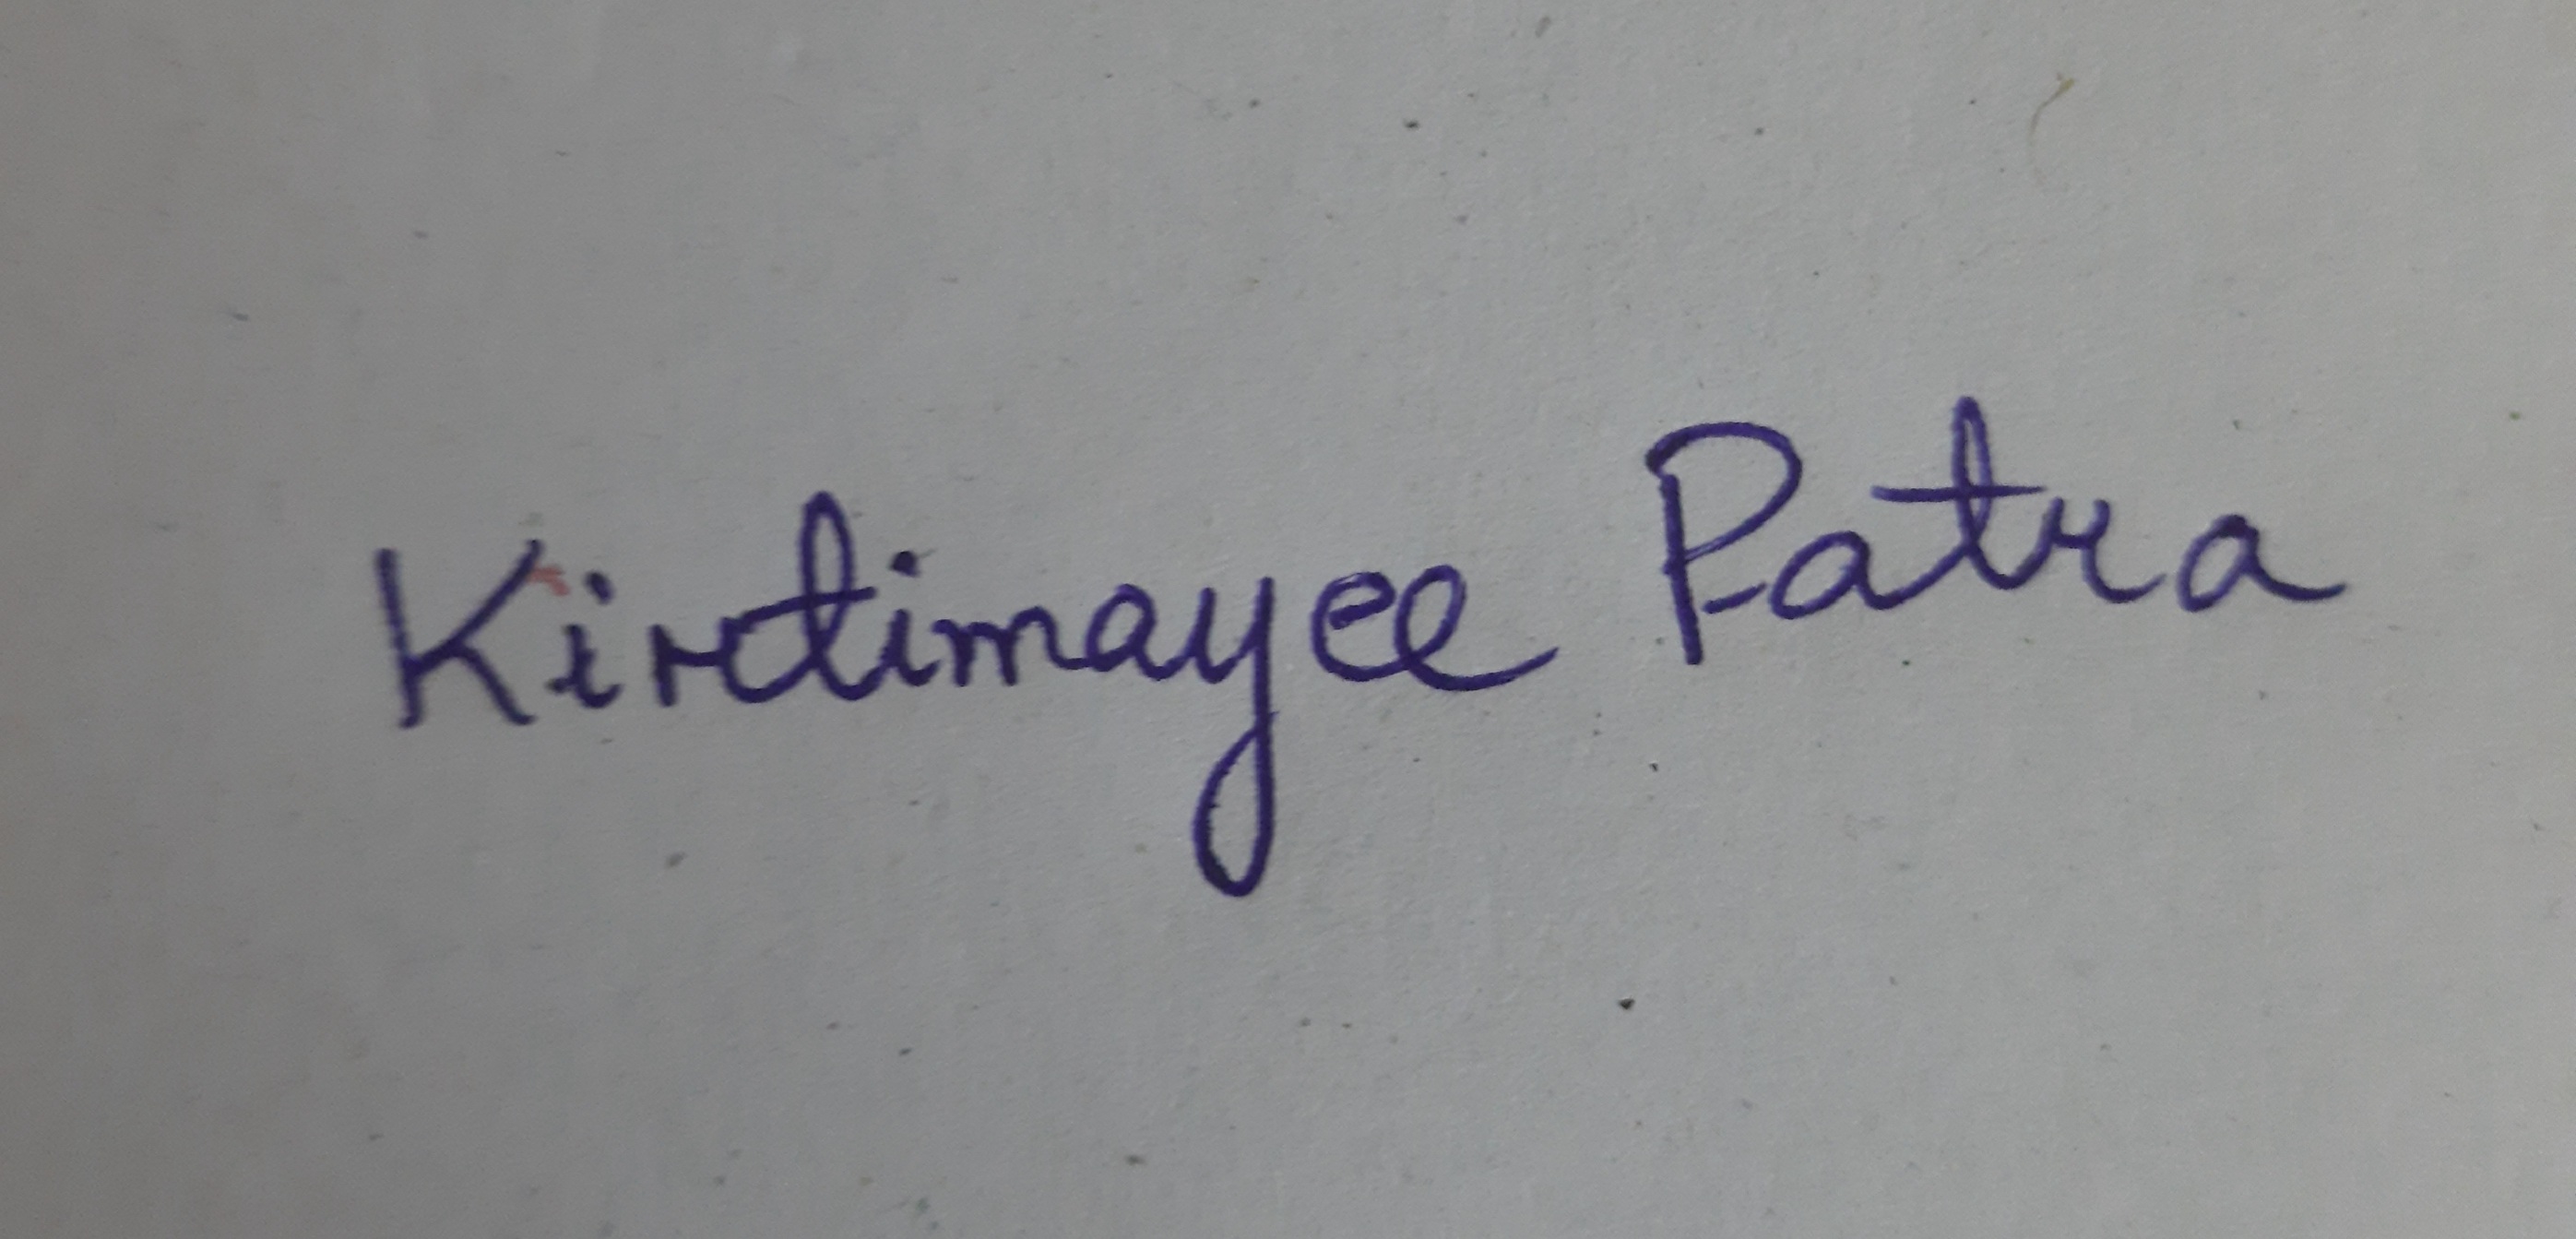 Kirtimayee Patra